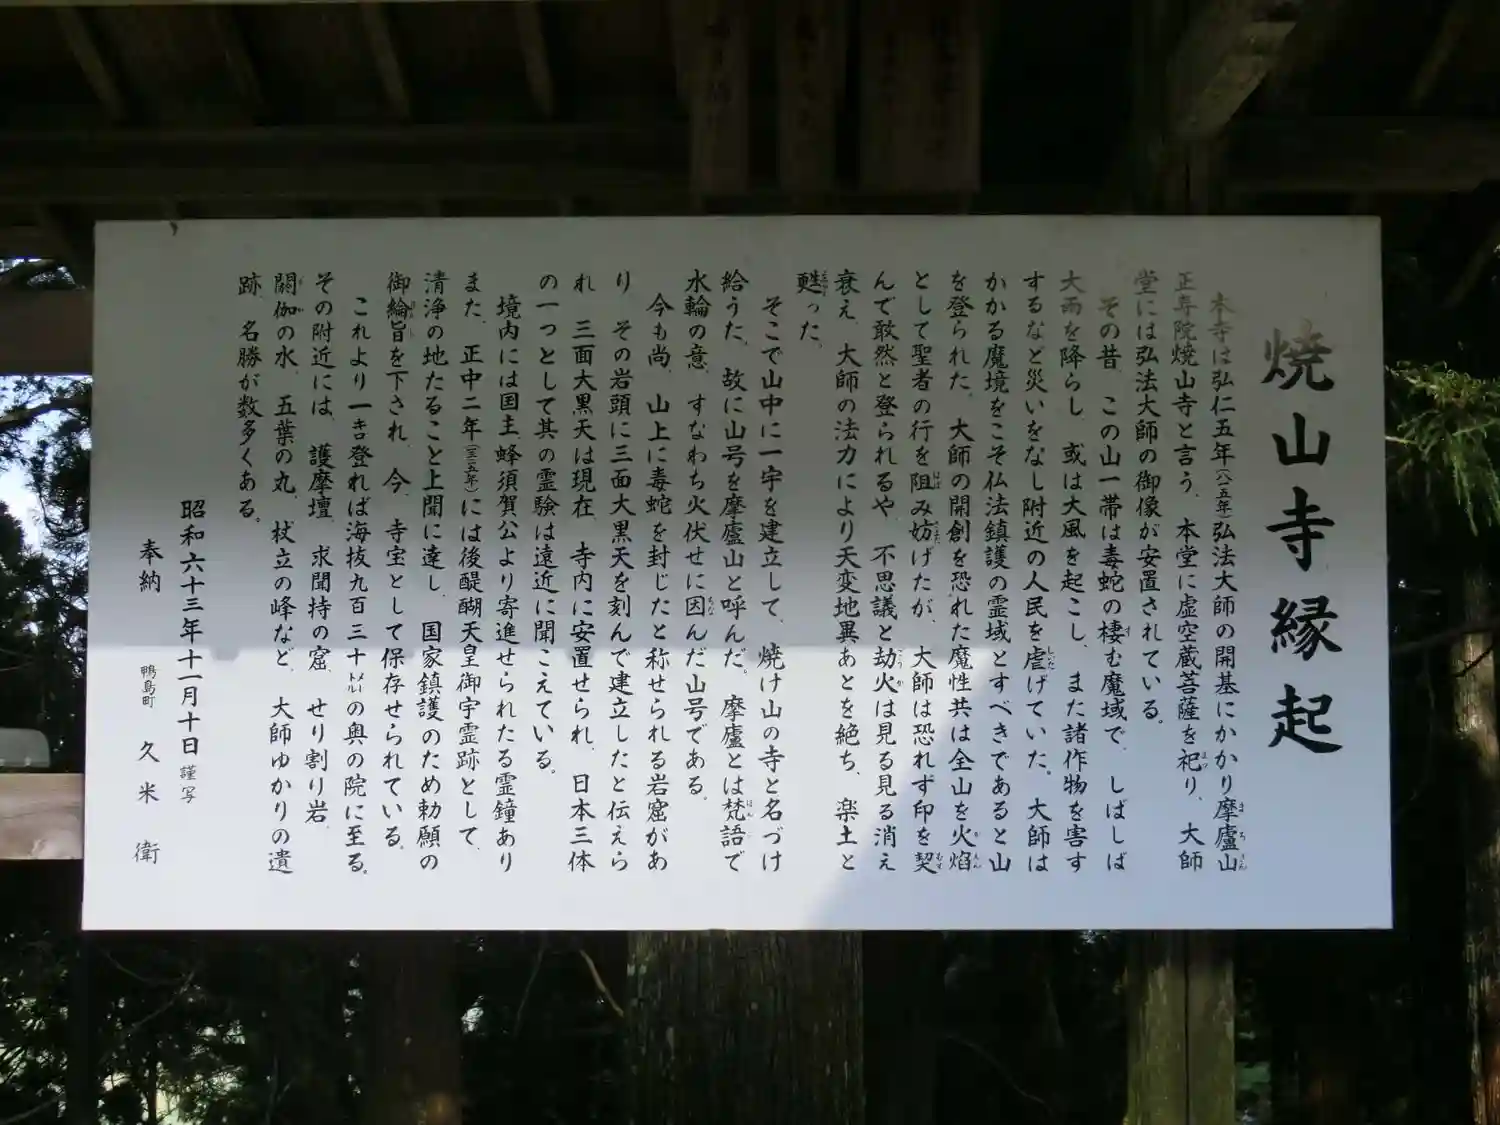 焼山寺縁起
本寺は弘仁五年(八一五年)弘法大師の開基にかかり摩廬山
正寿院焼山寺と言う、本堂に虚空蔵菩薩を祀り、大師
堂には弘法大師の御像が安置されている。
その昔、この山一帯は毒蛇の棲む魔域で、しばしば
大雨を降らし、或は大風を起こし、また諸作物を害す
するなど災いをなし附近の人民を虐げていた。大師は
かかる魔境をこそ仏法鎮護の霊域とすべきであると山
を登られた、大師の開創を恐れた魔性共は全山を火焰
として聖者の行を阻み妨げたが、大師は恐れず印を契
んで敢然と登られるや、不思議と劫火は見る見る消え
衰え、大師の法力により天変地異あとを絶ち、楽土と
甦った。
そこで山中に一宇を建立して、焼け山の寺と名づけ
給うた、故に山号を摩廬山と呼んだ。摩廬とは梵語で
水輪の意、すなわち火伏せに因んだ山号である。
今も尚、山上に毒蛇を封じたと称せられる岩窟があ
り、その岩頭に三面大黒天を刻んで建立したと伝えら
れ、三面大黒天は現在、寺内に安置せられ、日本三体
の一つとして其の霊験は遠近に聞こえている。
境内には国主蜂須賀公より寄進せられたる霊鐘あり
また、正中二年(一三二五年)には後醍醐天皇御宇霊跡として、
清浄の地たること上聞に達し、国家鎮護のため勅願の
御綸旨を下され、今、寺宝として保存せられている。
これより一粁登れば海抜九百三十㍍の奥の院に至る。
その附近には、護摩壇、求聞持の窟、せり割り岩、
閼伽の水、五葉の丸、杖立の峰など、大師ゆかりの遺
跡、名勝が数多くある。
昭和六十三年十一月十日 謹写
奉納 鴨島町 久米 衛